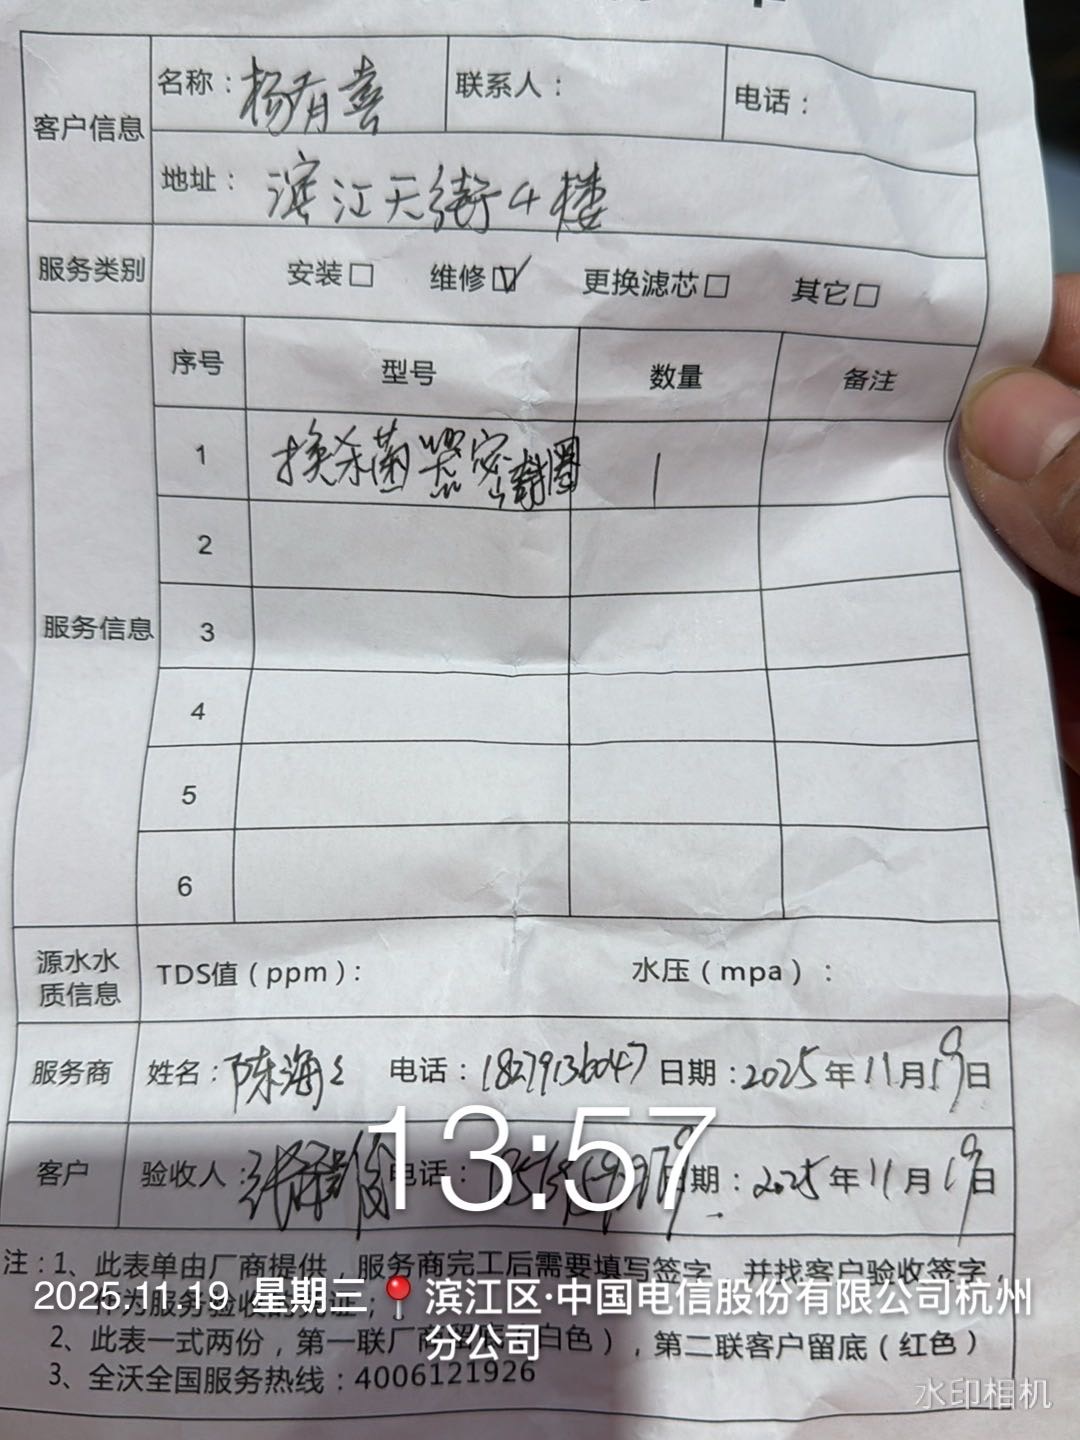 客户信息 名称：杨有喜 联系人： 电话：
地址：滨江天街4楼
服务类别 安装□ 维修☑ 更换滤芯□ 其它□
服务信息
序号 型号 数量 备注
1 换杀菌器密封圈 1
2
3
4
5
6
源水水质信息 TDS值（ppm）： 水压（mpa）：
服务商 姓名：陈海 电话：18279136047 日期：2025年11月19日
13:57
客户 验收人： 电话： 日期：2025年11月19日
注：1、此表单由厂商提供，服务商完工后需要填写签字，并找客户验收签字，
作为服务验收的凭证；
2、此表一式两份，第一联厂商留底（白色），第二联客户留底（红色）
3、全沃全国服务热线：4006121926
2025.11.19 星期三 滨江区·中国电信股份有限公司杭州
分公司
水印相机